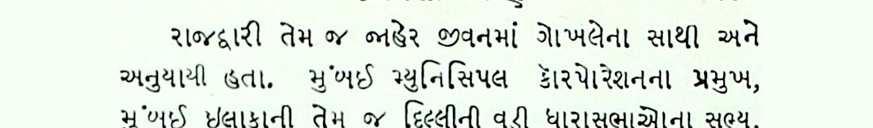 રાજદ્વારી તેમ જ જાહેર જીવનમાં ગોખલેના સાથી અને
અનુયાયી હતા. મુંબઈ મ્યુનિસિપલ કૉરપોરેશનના પ્રમુખ,
મુંબઈ ઇલાકાની તેમ જ દિલ્લીની વડી ધારાસભાઓના સભ્ય.